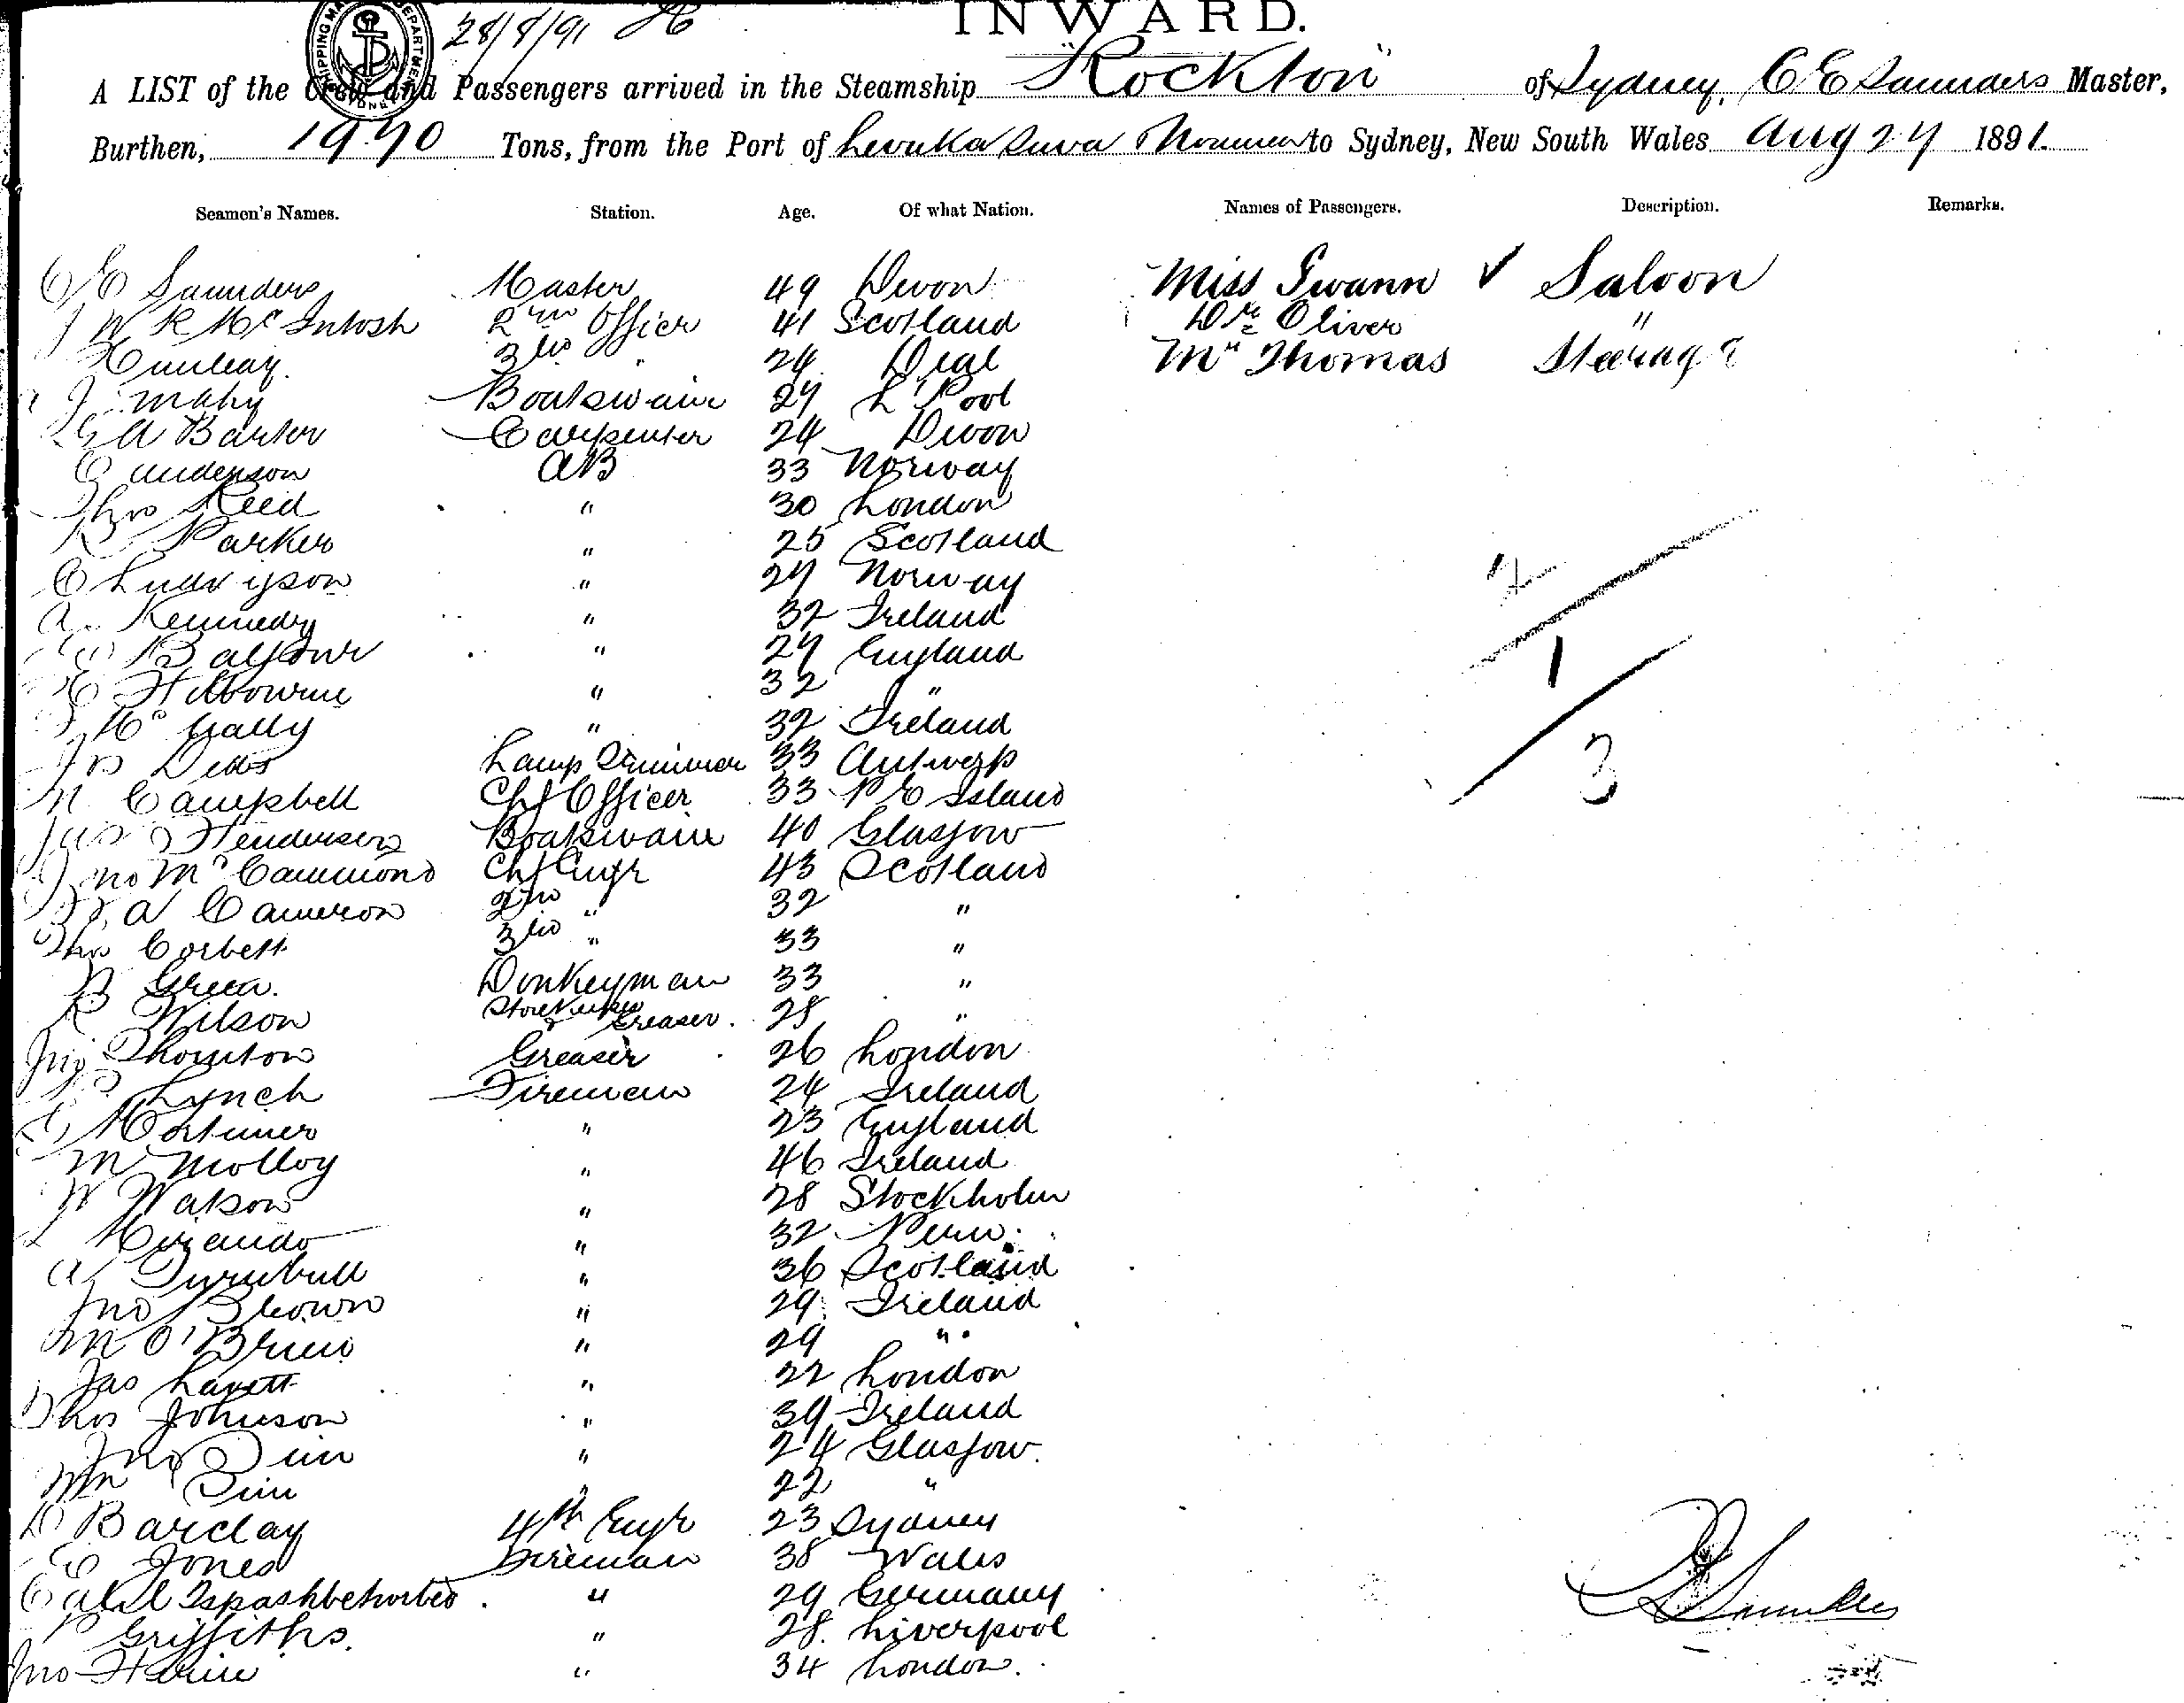 28/8/91
INWARD.
A LIST of the Crew and Passengers arrived in the Steamship "Rockton" of Sydney, C E Saunders Master,
Burthen, 1970 Tons, from the Port of Levuka Suva Noumea to Sydney, New South Wales Aug 27 1891.
Seamen's Names. Station. Age. Of what Nation. Names of Passengers. Description. Remarks.
C E Saunders Master 49 Devon Miss Swann ✓ Saloon
J W R McIntosh 2nd Officer 41 Scotland Dr Oliver "
3rd " 24 Deal Mr Thomas Steerage
J Mahy Boatswain 27 L'Pool
G A Barter Carpenter 24 Devon
C Anderson AB 33 Norway
Thos Reed " 30 London
R Parker " 25 Scotland
C Ludvigson " 27 Norway
A. Kennedy " 32 Ireland
Balfour " 27 England
" 32 "
Mc Nally " 32 Ireland
Lamp Trimmer 33 Antwerp
N Campbell Chf Officer 33 P E Island
Jas Henderson Boatswain 40 Glasgow
Jno McCammond Chf Engr 43 Scotland
A Cameron 2nd " 32 "
Thos Corbett 3rd " 33 "
B Green. Donkeyman 33 "
R Wilson Storekeeper & Greaser. 28 "
Thornton Greaser 26 London
Lynch Fireman 24 Ireland
G Mortimer " 23 England
M Molloy " 46 Ireland
W Watson " 28 Stockholm
Mirando " 32 Peru
A Turnbull " 36 Scotland
Jno Brown " 29 Ireland
M O'Brien " 29 "
Jas Lavett " 22 London
Thos Johnson " 39 Ireland
Jno Sim " 24 Glasgow.
Wm Sim " 22 "
D Barclay 4th Engr 23 Sydney
E Jones Fireman 38 Wales
" 29 Germany
P Griffiths. " 28. Liverpool
Jno " 34 London.
2
1
3
C E Saunders